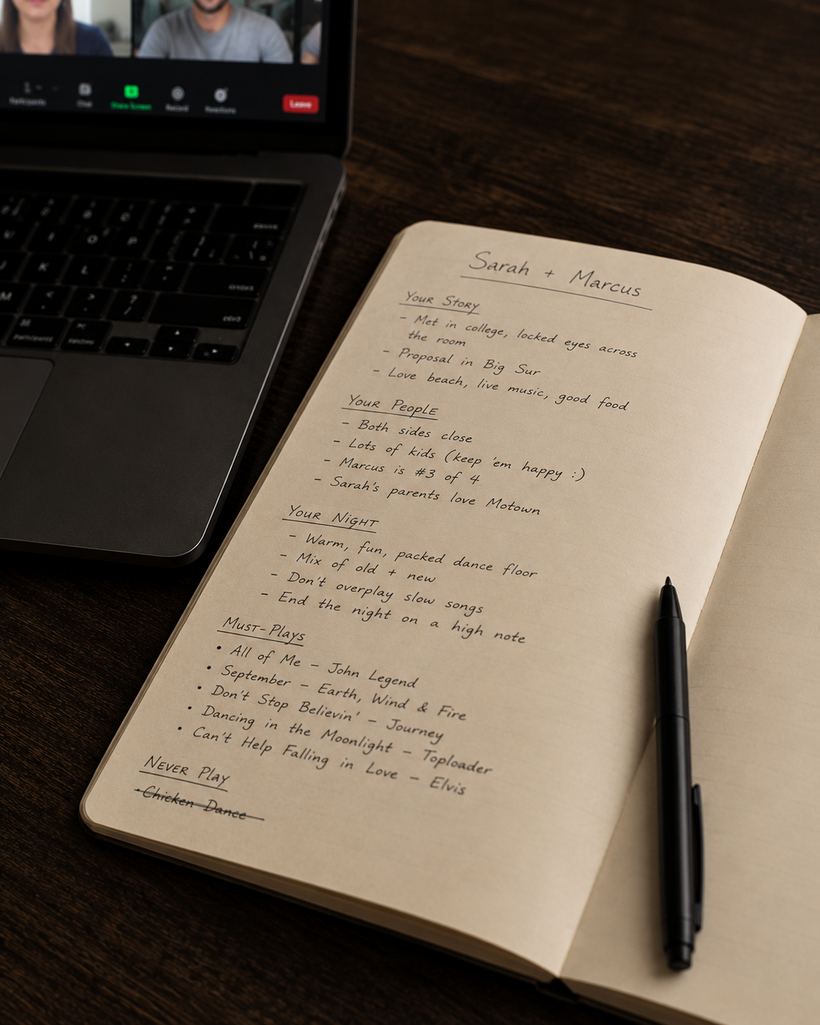 Participants Chat Share Screen Record Reactions Leave
Sarah + Marcus
Your Story
- Met in college, locked eyes across
the room
- Proposal in Big Sur
- Love beach, live music, good food
Your People
- Both sides close
- Lots of kids (keep 'em happy :)
- Marcus is #3 of 4
- Sarah's parents love Motown
Your Night
- Warm, fun, packed dance floor
- Mix of old + new
- Don't overplay slow songs
- End the night on a high note
Must-Plays
• All of Me – John Legend
• September – Earth, Wind & Fire
• Don't Stop Believin' – Journey
• Dancing in the Moonlight – Toploader
• Can't Help Falling in Love – Elvis
Never Play
• Chicken Dance